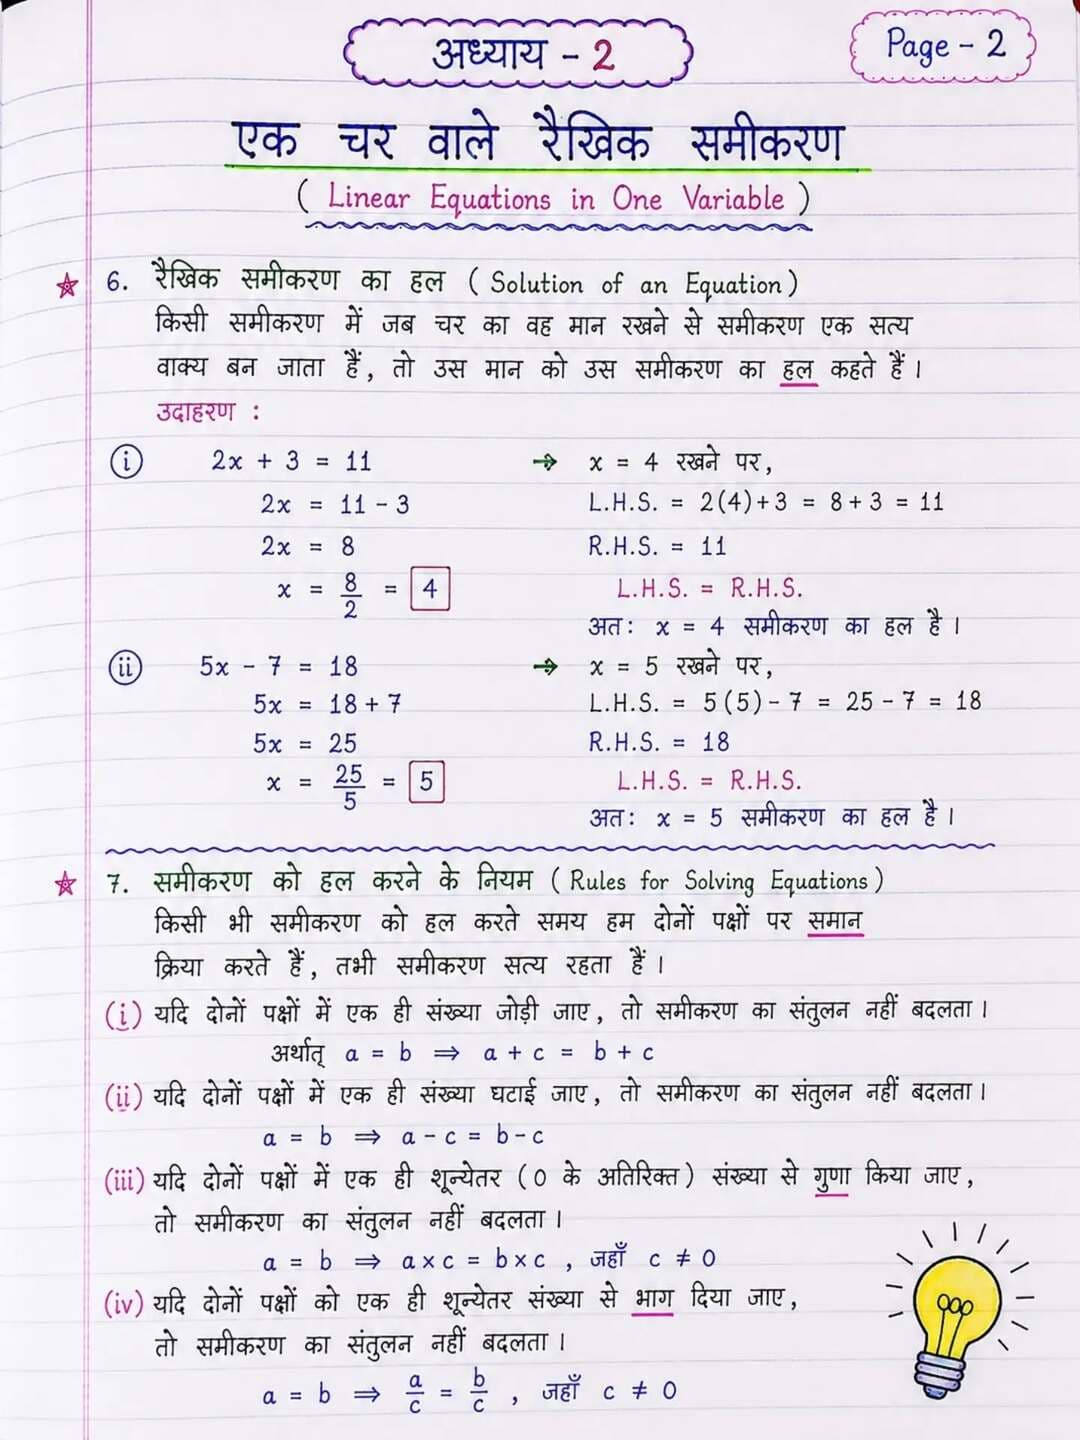 अध्याय - 2
Page - 2
एक चर वाले रैखिक समीकरण
( Linear Equations in One Variable )
6. रैखिक समीकरण का हल ( Solution of an Equation )
किसी समीकरण में जब चर का वह मान रखने से समीकरण एक सत्य
वाक्य बन जाता हैं, तो उस मान को उस समीकरण का हल कहते हैं।
उदाहरण :
(i) 2x + 3 = 11 → x = 4 रखने पर,
2x = 11 - 3 L.H.S. = 2(4)+3 = 8+3 = 11
2x = 8 R.H.S. = 11
x = 8/2 = 4 L.H.S. = R.H.S.
अतः x = 4 समीकरण का हल है।
(ii) 5x - 7 = 18 → x = 5 रखने पर,
5x = 18 + 7 L.H.S. = 5(5) - 7 = 25 - 7 = 18
5x = 25 R.H.S. = 18
x = 25/5 = 5 L.H.S. = R.H.S.
अतः x = 5 समीकरण का हल है।
7. समीकरण को हल करने के नियम ( Rules for Solving Equations )
किसी भी समीकरण को हल करते समय हम दोनों पक्षों पर समान
क्रिया करते हैं, तभी समीकरण सत्य रहता हैं।
(i) यदि दोनों पक्षों में एक ही संख्या जोड़ी जाए, तो समीकरण का संतुलन नहीं बदलता।
अर्थात् a = b ⇒ a + c = b + c
(ii) यदि दोनों पक्षों में एक ही संख्या घटाई जाए, तो समीकरण का संतुलन नहीं बदलता।
a = b ⇒ a - c = b - c
(iii) यदि दोनों पक्षों में एक ही शून्येतर (0 के अतिरिक्त) संख्या से गुणा किया जाए,
तो समीकरण का संतुलन नहीं बदलता।
a = b ⇒ a × c = b × c , जहाँ c ≠ 0
(iv) यदि दोनों पक्षों को एक ही शून्येतर संख्या से भाग दिया जाए,
तो समीकरण का संतुलन नहीं बदलता।
a = b ⇒ a/c = b/c , जहाँ c ≠ 0